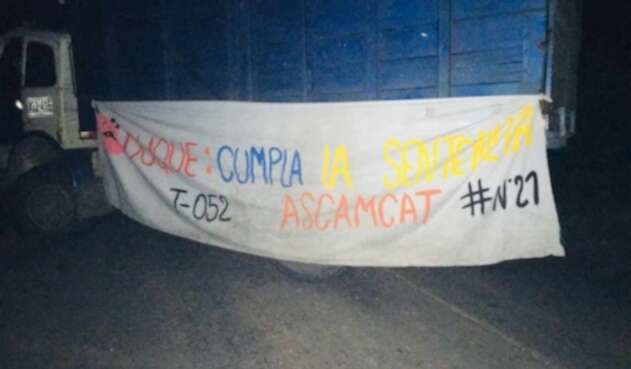 DUQUE: CUMPLA LA SENTENCIA
T-052 ASCAMCAT #N°27